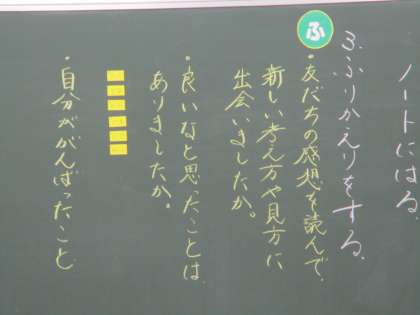 ノートにはる
3.ふりかえりをする。
ふ
・友だちの感想を読んで、
新しい考え方や見方に
出会いましたか。
・良いなと思ったことは
ありましたか。
・自分ががんばったこと